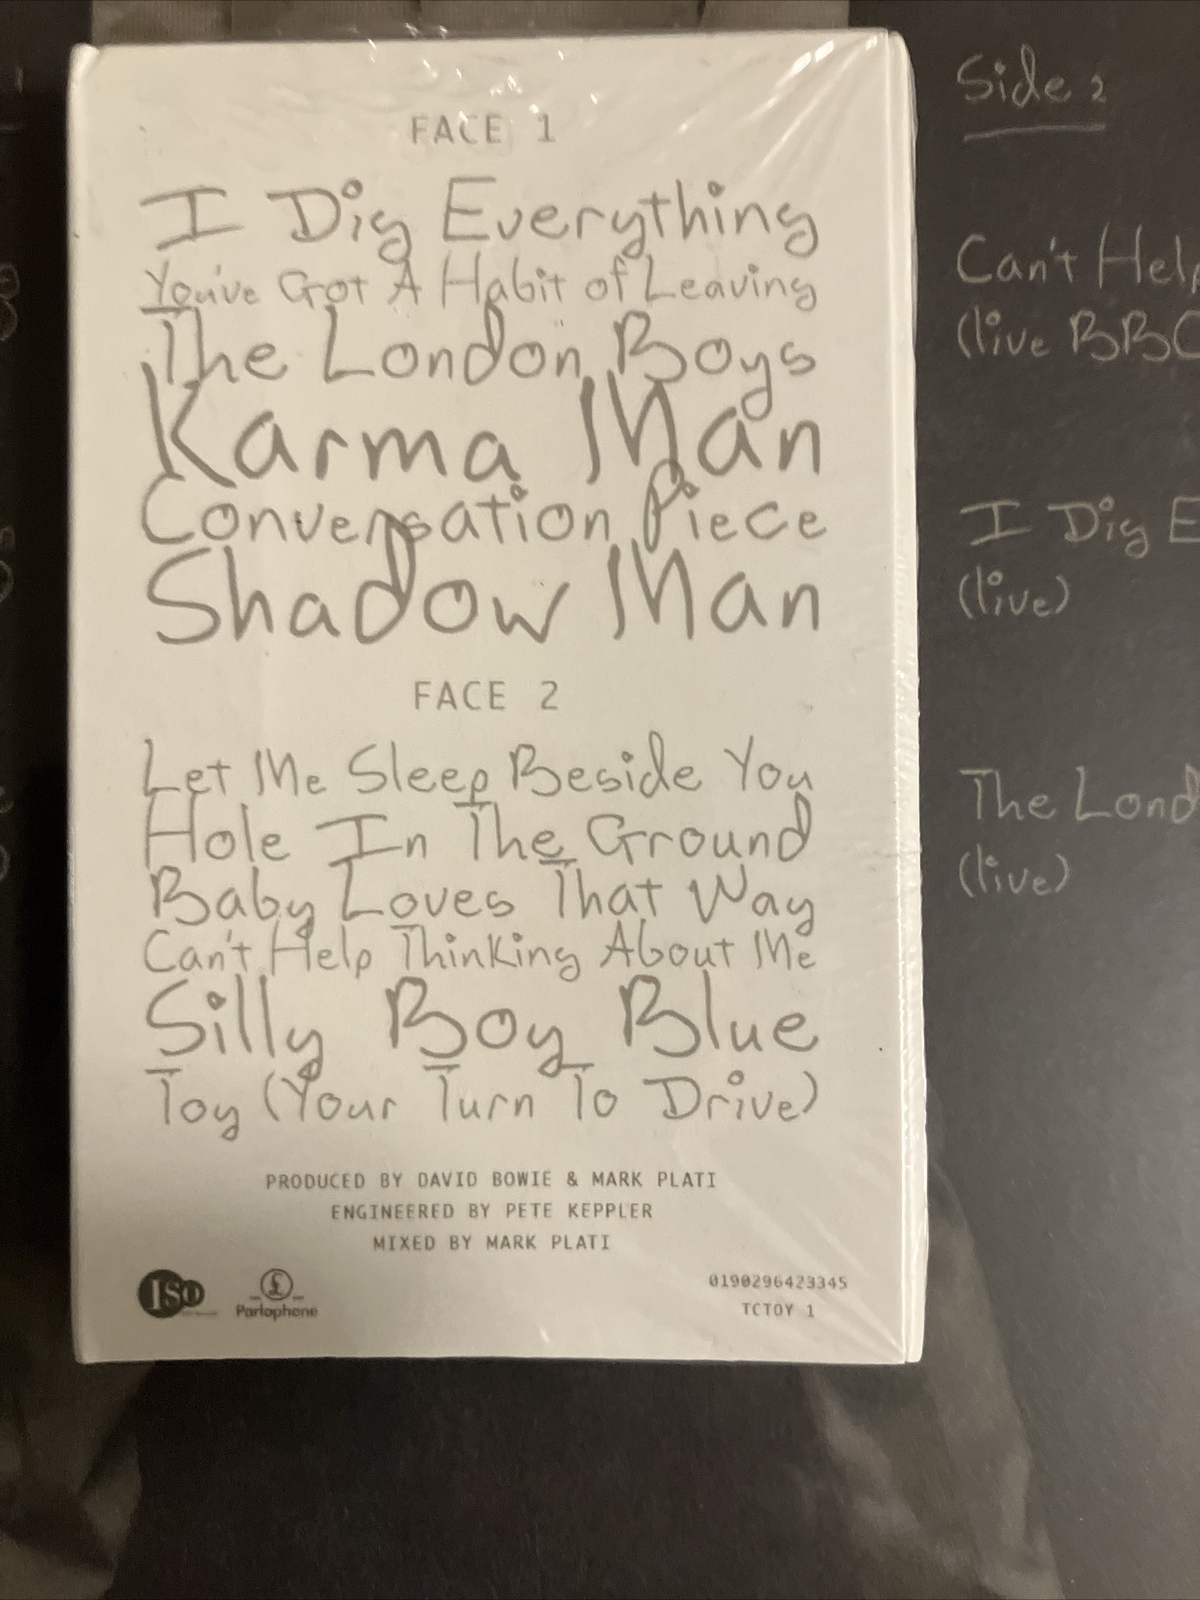 FACE 1
I Dig Everything
You've Got A Habit of Leaving
The London Boys
Karma Man
Conversation Piece
Shadow Man
FACE 2
Let Me Sleep Beside You
Hole In The Ground
Baby Loves That Way
Can't Help Thinking About Me
Silly Boy Blue
Toy (Your Turn To Drive)
PRODUCED BY DAVID BOWIE & MARK PLATI
ENGINEERED BY PETE KEPPLER
MIXED BY MARK PLATI
ISO
£
Parlophone
0190296423345
TCTOY 1
Side 2
Can't Help
(live BBC
I Dig E
(live)
The Lond
(live)